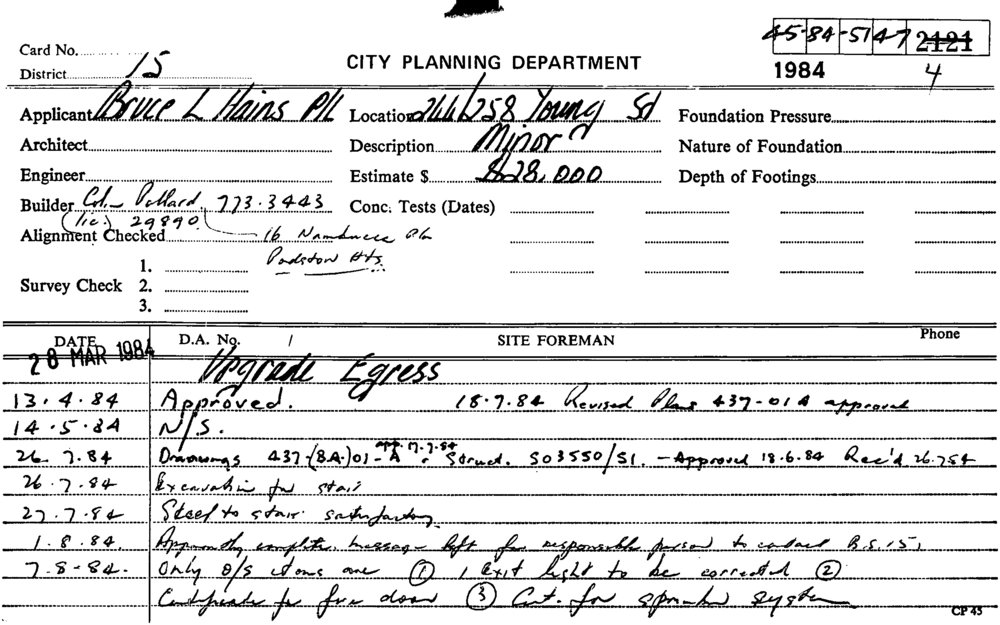 45-84-5147 2121
Card No.
District 15
CITY PLANNING DEPARTMENT
1984 4
Applicant Bruce L Hains P/L Location 244/258 Young St Foundation Pressure
Architect Description Minor Nature of Foundation
Engineer Estimate $ $28,000 Depth of Footings
Builder Col Pollard 773.3443 Conc. Tests (Dates)
(lic.) 29890
Alignment Checked 16 Nambucca Pl.
Padstow Hts.
1.
Survey Check 2.
3.
DATE D.A. No. / SITE FOREMAN Phone
28 MAR 1984 Upgrade Egress
13.4.84 Approved. 18.7.84 Revised Plans 437-01A approved
14.5.84 N/S.
app. 17.7.84
26.7.84 Drawings 437-(BA)01-A Struct. S03550/S1. - Approved 18.6.84 Rec'd 26.7.84
26.7.84 Excavation for stair
27.7.84 Steel to stair satisfactory
1.8.84. Apparently complete. Message left for responsible person to contact B.S.15.
7.8-84. Only o/s items are ① 1 exit light to be corrected ②
Certificate for fire door ③ Cert. for sprinkler system
CP 45